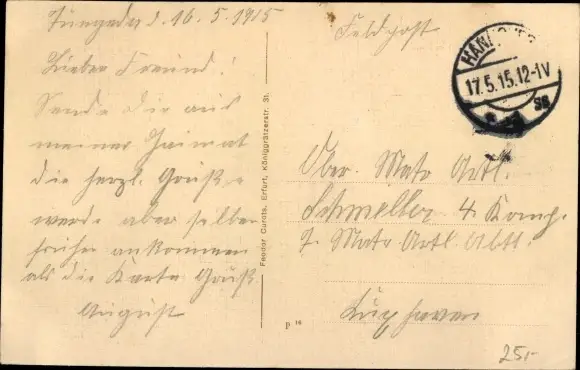 Tüngeda d. 16.5.1915
Lieber Freund!
Sende Dir aus
meiner Heimat
die herzl. Grüße
werde aber selber
früher ankommen
als die Karte Gruß
August
Feodor Curdts, Erfurt, Königgrätzerstr. 31.
P 16
Feldpost
HANNOVER
17.5.15.12-1V
Ober. Matr Artl.
Schmeller 4. Komp.
7. Matr Artl. Abtl.
Cuxhaven
25,-